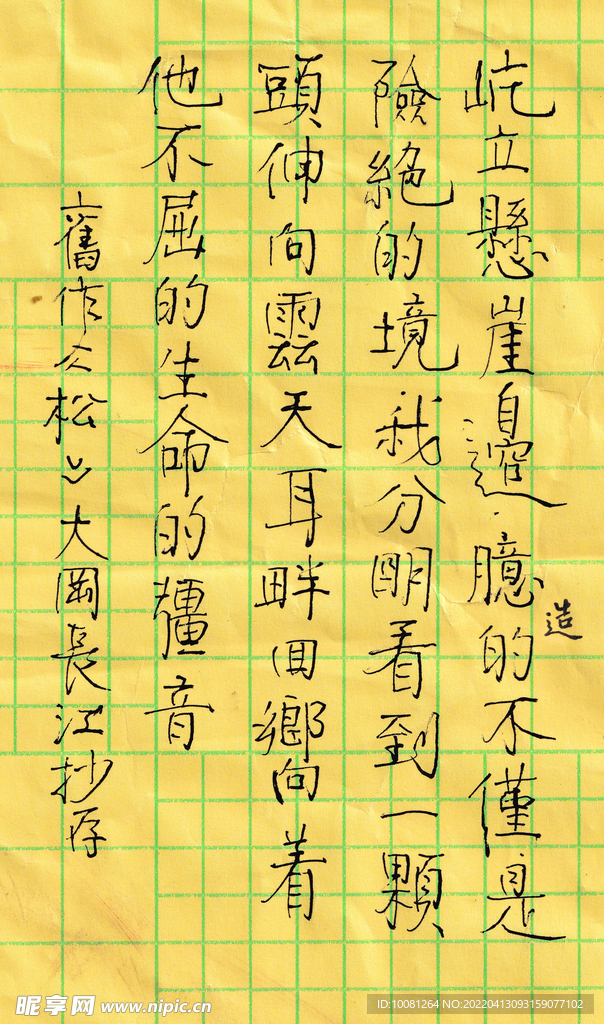 屹立懸崖邊臆的不僅是
造
險絕的境我分明看到一顆
頭伸向雲天耳畔回鄉向着
他不屈的生命的疆音
舊作《松》大岡長江抄存
昵享网 www.nipic.cn
ID:10081264 NO:20220413093159077102